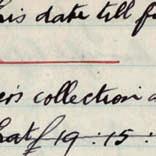 his date till f
er's collection a
that £19:15: